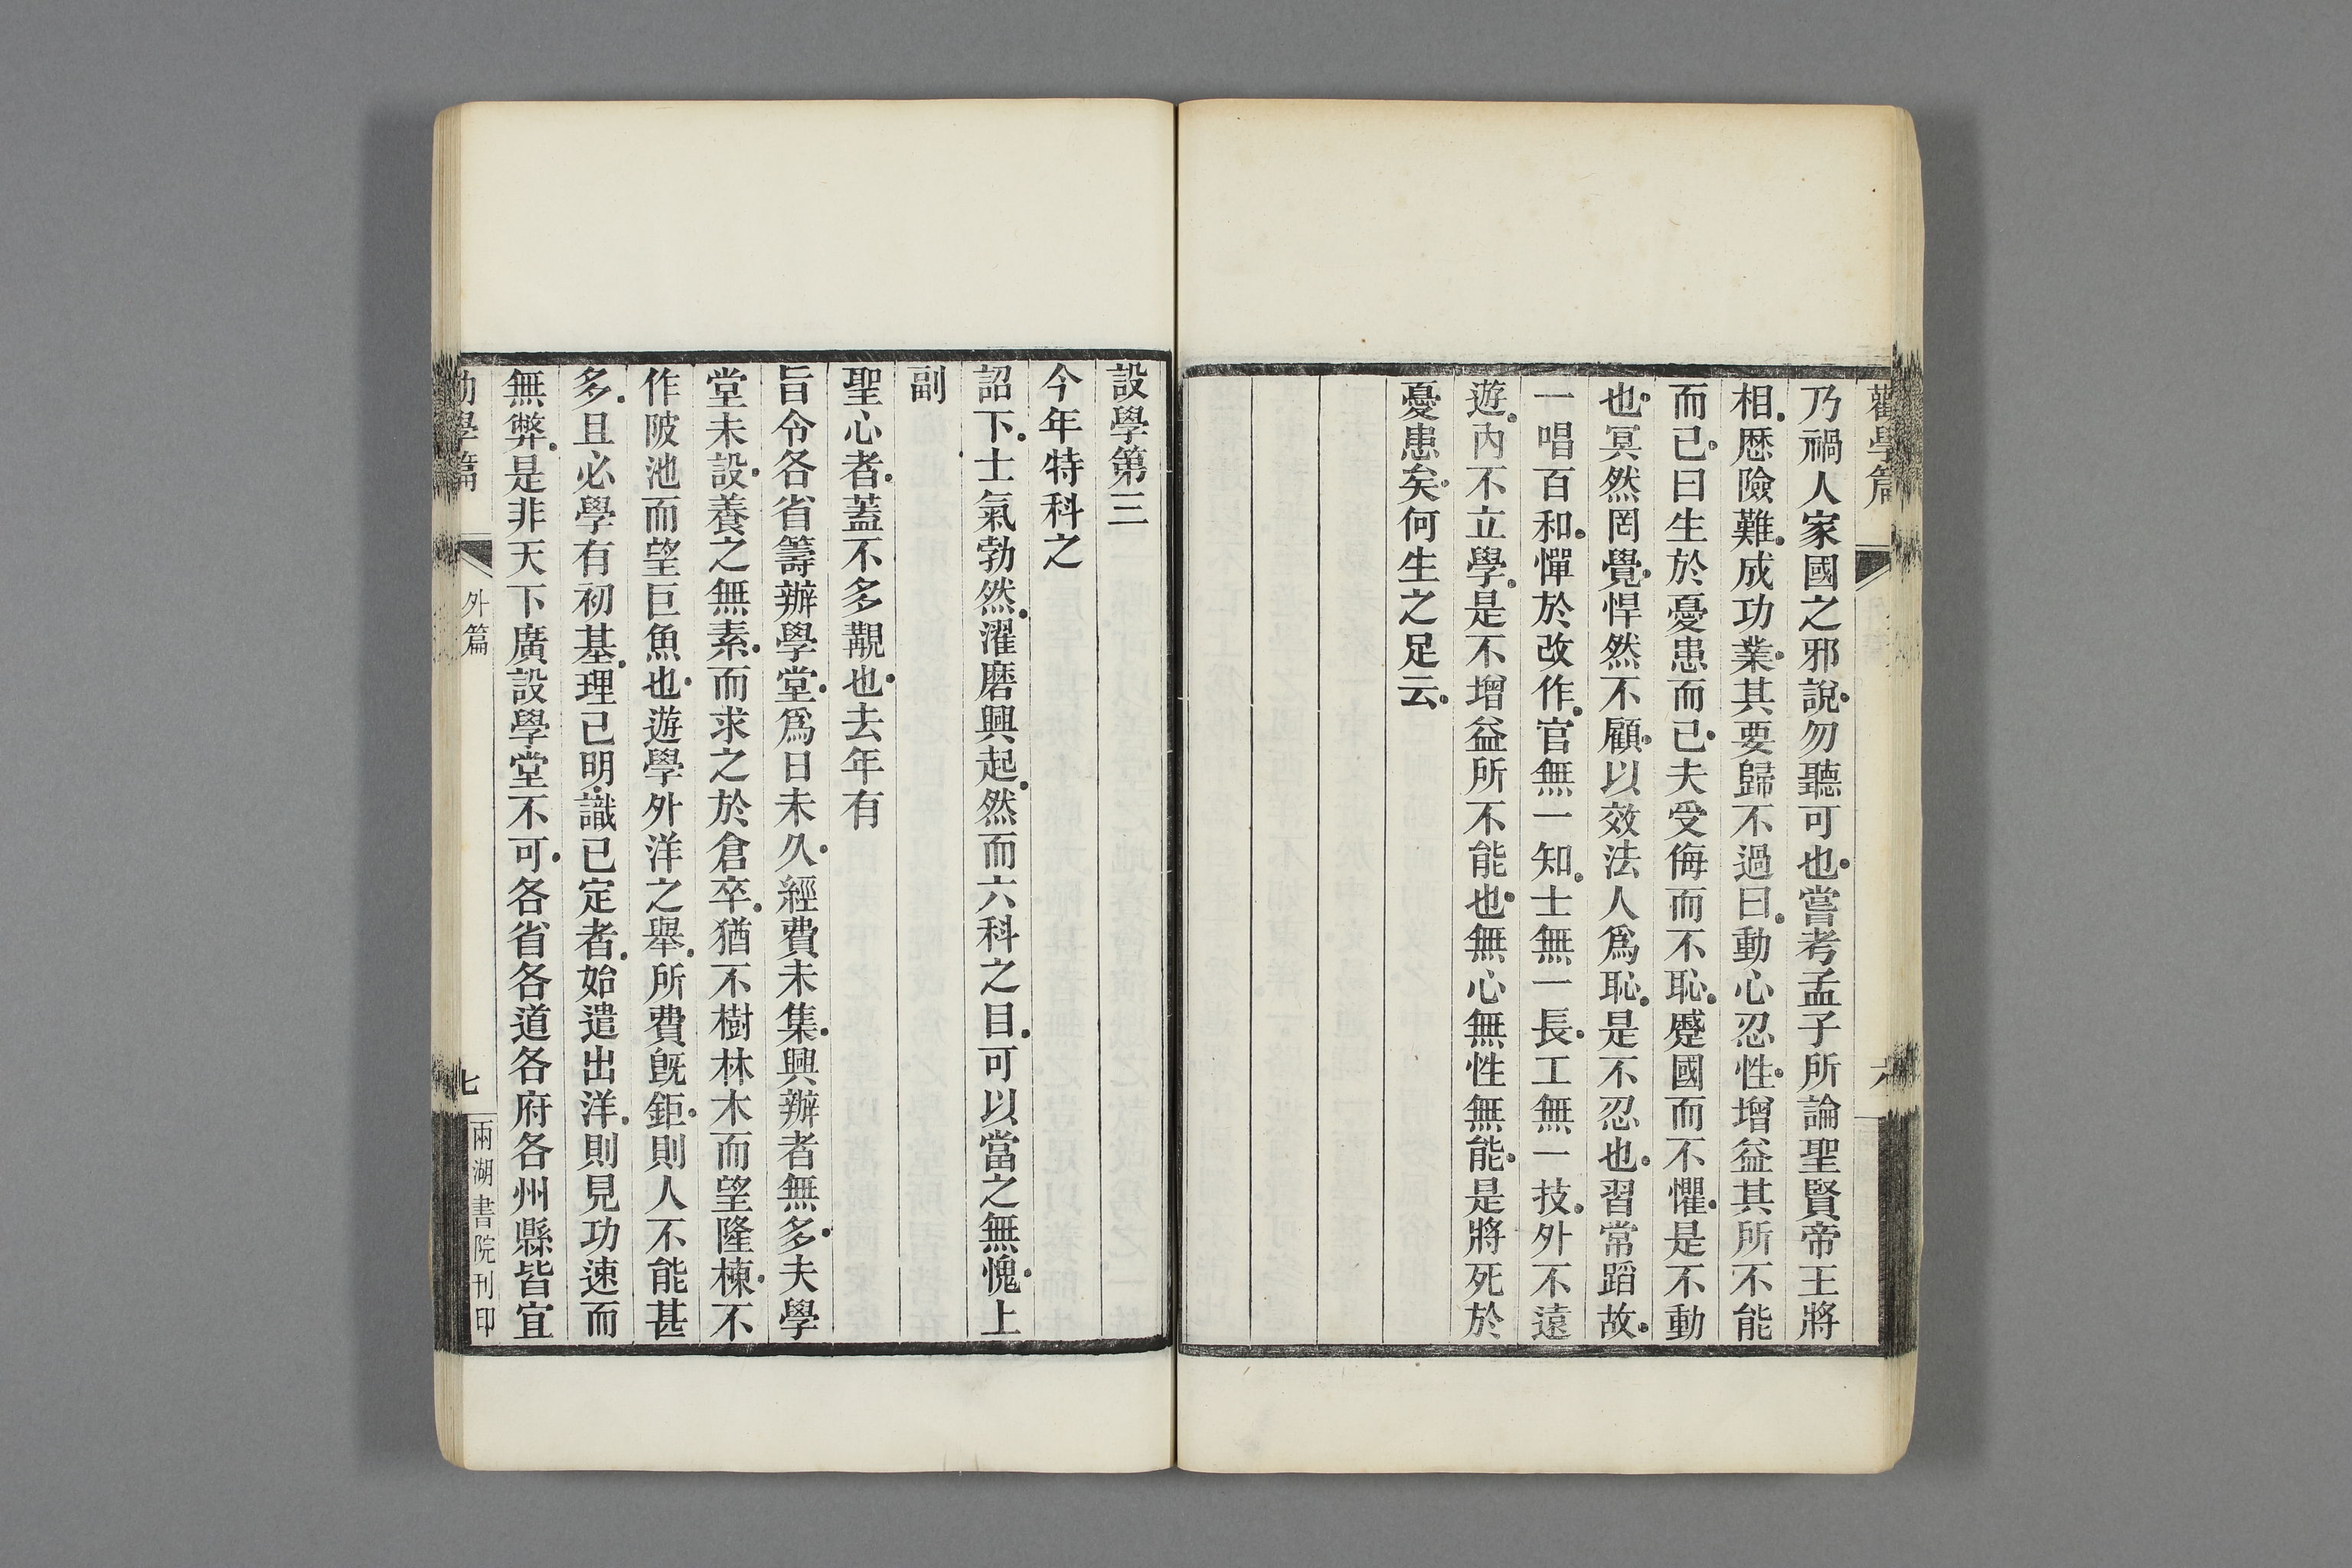 勸學篇
六
乃禍人家國之邪說勿聽可也嘗考孟子所論聖賢帝王將
相歷險難成功業其要歸不過曰動心忍性增益其所不能
而已曰生於憂患而已夫受侮而不恥蹙國而不懼是不動
也冥然罔覺悍然不顧以效法人爲恥是不忍也習常蹈故
一唱百和憚於改作官無一知士無一長工無一技外不遠
遊內不立學是不增益所不能也無心無性無能是將死於
憂患矣何生之足云
設學第三
今年特科之
詔下士氣勃然濯磨興起然而六科之目可以當之無愧上
副
聖心者蓋不多覯也去年有
旨令各省籌辦學堂爲日未久經費未集興辦者無多夫學
堂未設養之無素而求之於倉卒猶不樹林木而望隆棟不
作陂池而望巨魚也遊學外洋之舉所費既鉅則人不能甚
多且必學有初基理已明識已定者始遣出洋則見功速而
無弊是非天下廣設學堂不可各省各道各府各州縣皆宜
學篇
外篇
七
兩湖書院刊印